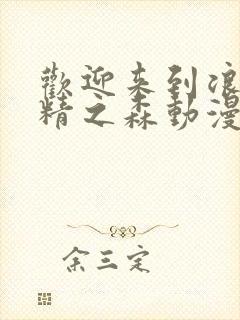 歡迎来到浪
精之森動漫
余三定